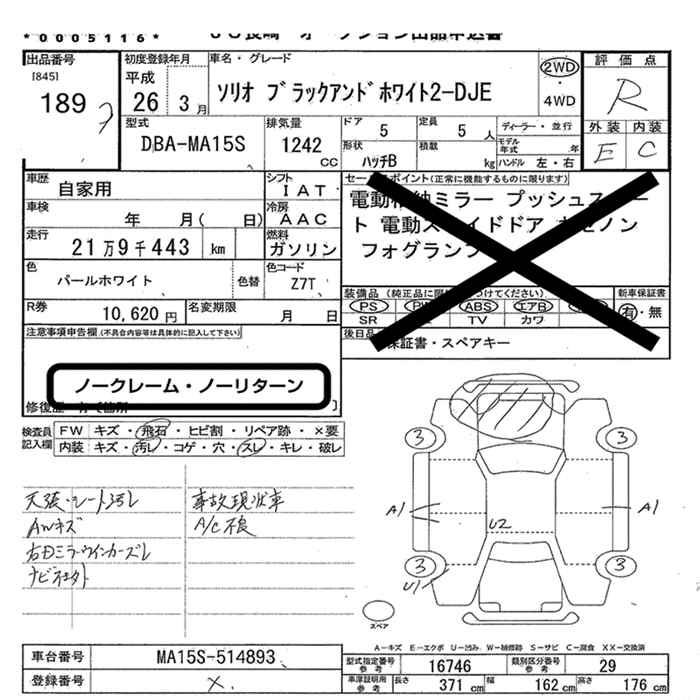 *0005116*
JU長崎 オークション出品申込書
出品番号
[845]
189
初度登録年月
平成
26年 3月
車名・グレード
ソリオ ブラックアンドホワイト2-DJE
2WD
・
4WD
評価点
R
外装 内装
E C
型式
DBA-MA15S
排気量
1242
cc
ドア 5
定員 5 人
形状 ハッチB
積載 kg
ディーラー・並行
モデル年式 年
ハンドル 左・右
車歴
自家用
シフト
IAT
車検
年 月( 日)
冷房
AAC
走行
21万9千443 km
燃料
ガソリン
色
パールホワイト
色替
色コード
Z7T
R券
10,620円
名変期限
月 日
セールスポイント(正常に機能するものに限ります)
電動格納ミラー プッシュスタート 電動スライドドア キセノン
フォグランプ
装備品
PS ABS エアB
SR TV カワ
新車保証書
有・無
後日品 保証書・スペアキー
注意事項申告欄(不具合内容等は具体的に記入して下さい)
ノークレーム・ノーリターン
修復歴
検査員
記入欄
FW キズ・飛石・ヒビ割・リペア跡・×要
内装 キズ・汚レ・コゲ・穴・スレ・キレ・破レ
天張・シート汚レ
AWキズ
右ドミラーウインカーズレ
事故現状車
A/C不良
3 3
A1 A1
U2
3 3
U1
スペア
A-キズ E-エクボ U-凹み W-補修跡 S-サビ C-腐食 XX-交換済
車台番号
MA15S-514893
登録番号
×
型式指定番号
参考
16746
類別区分番号
参考
29
車庫証明用
参考
長さ 371 cm 幅 162 cm 高さ 176 cm